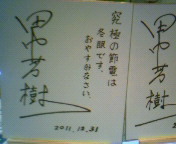 究極の節電は
冬眠です。
おやすみなさい。
田中芳樹
2011.12.31